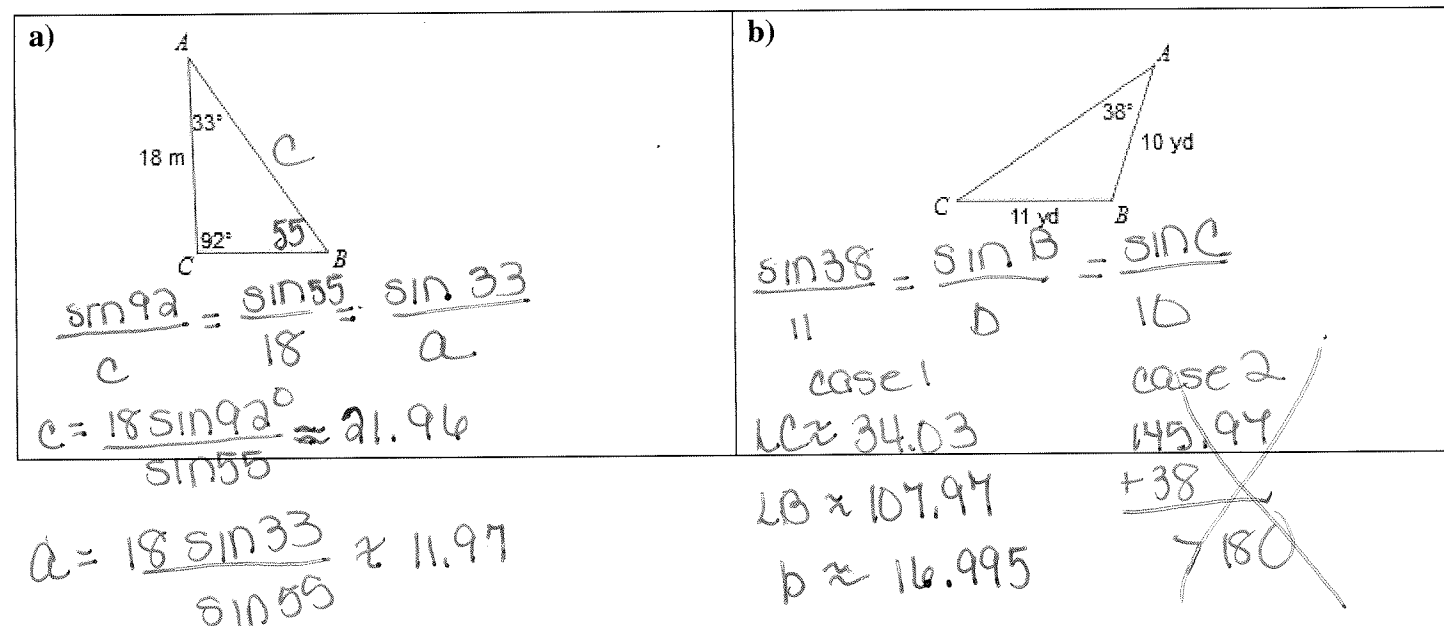 a)
A
33°
18 m
C
92°
55
C
B
sin92/c = sin55/18 = sin 33/a
c = 18sin92°/sin55 ≈ 21.96
a = 18 sin33/sin55 ≈ 11.97
b)
A
38°
10 yd
C
11 yd
B
sin38/11 = sin B/b = sinC/10
case 1
∠C ≈ 34.03
∠B ≈ 107.97
b ≈ 16.995
case 2
145.97
+38
> 180